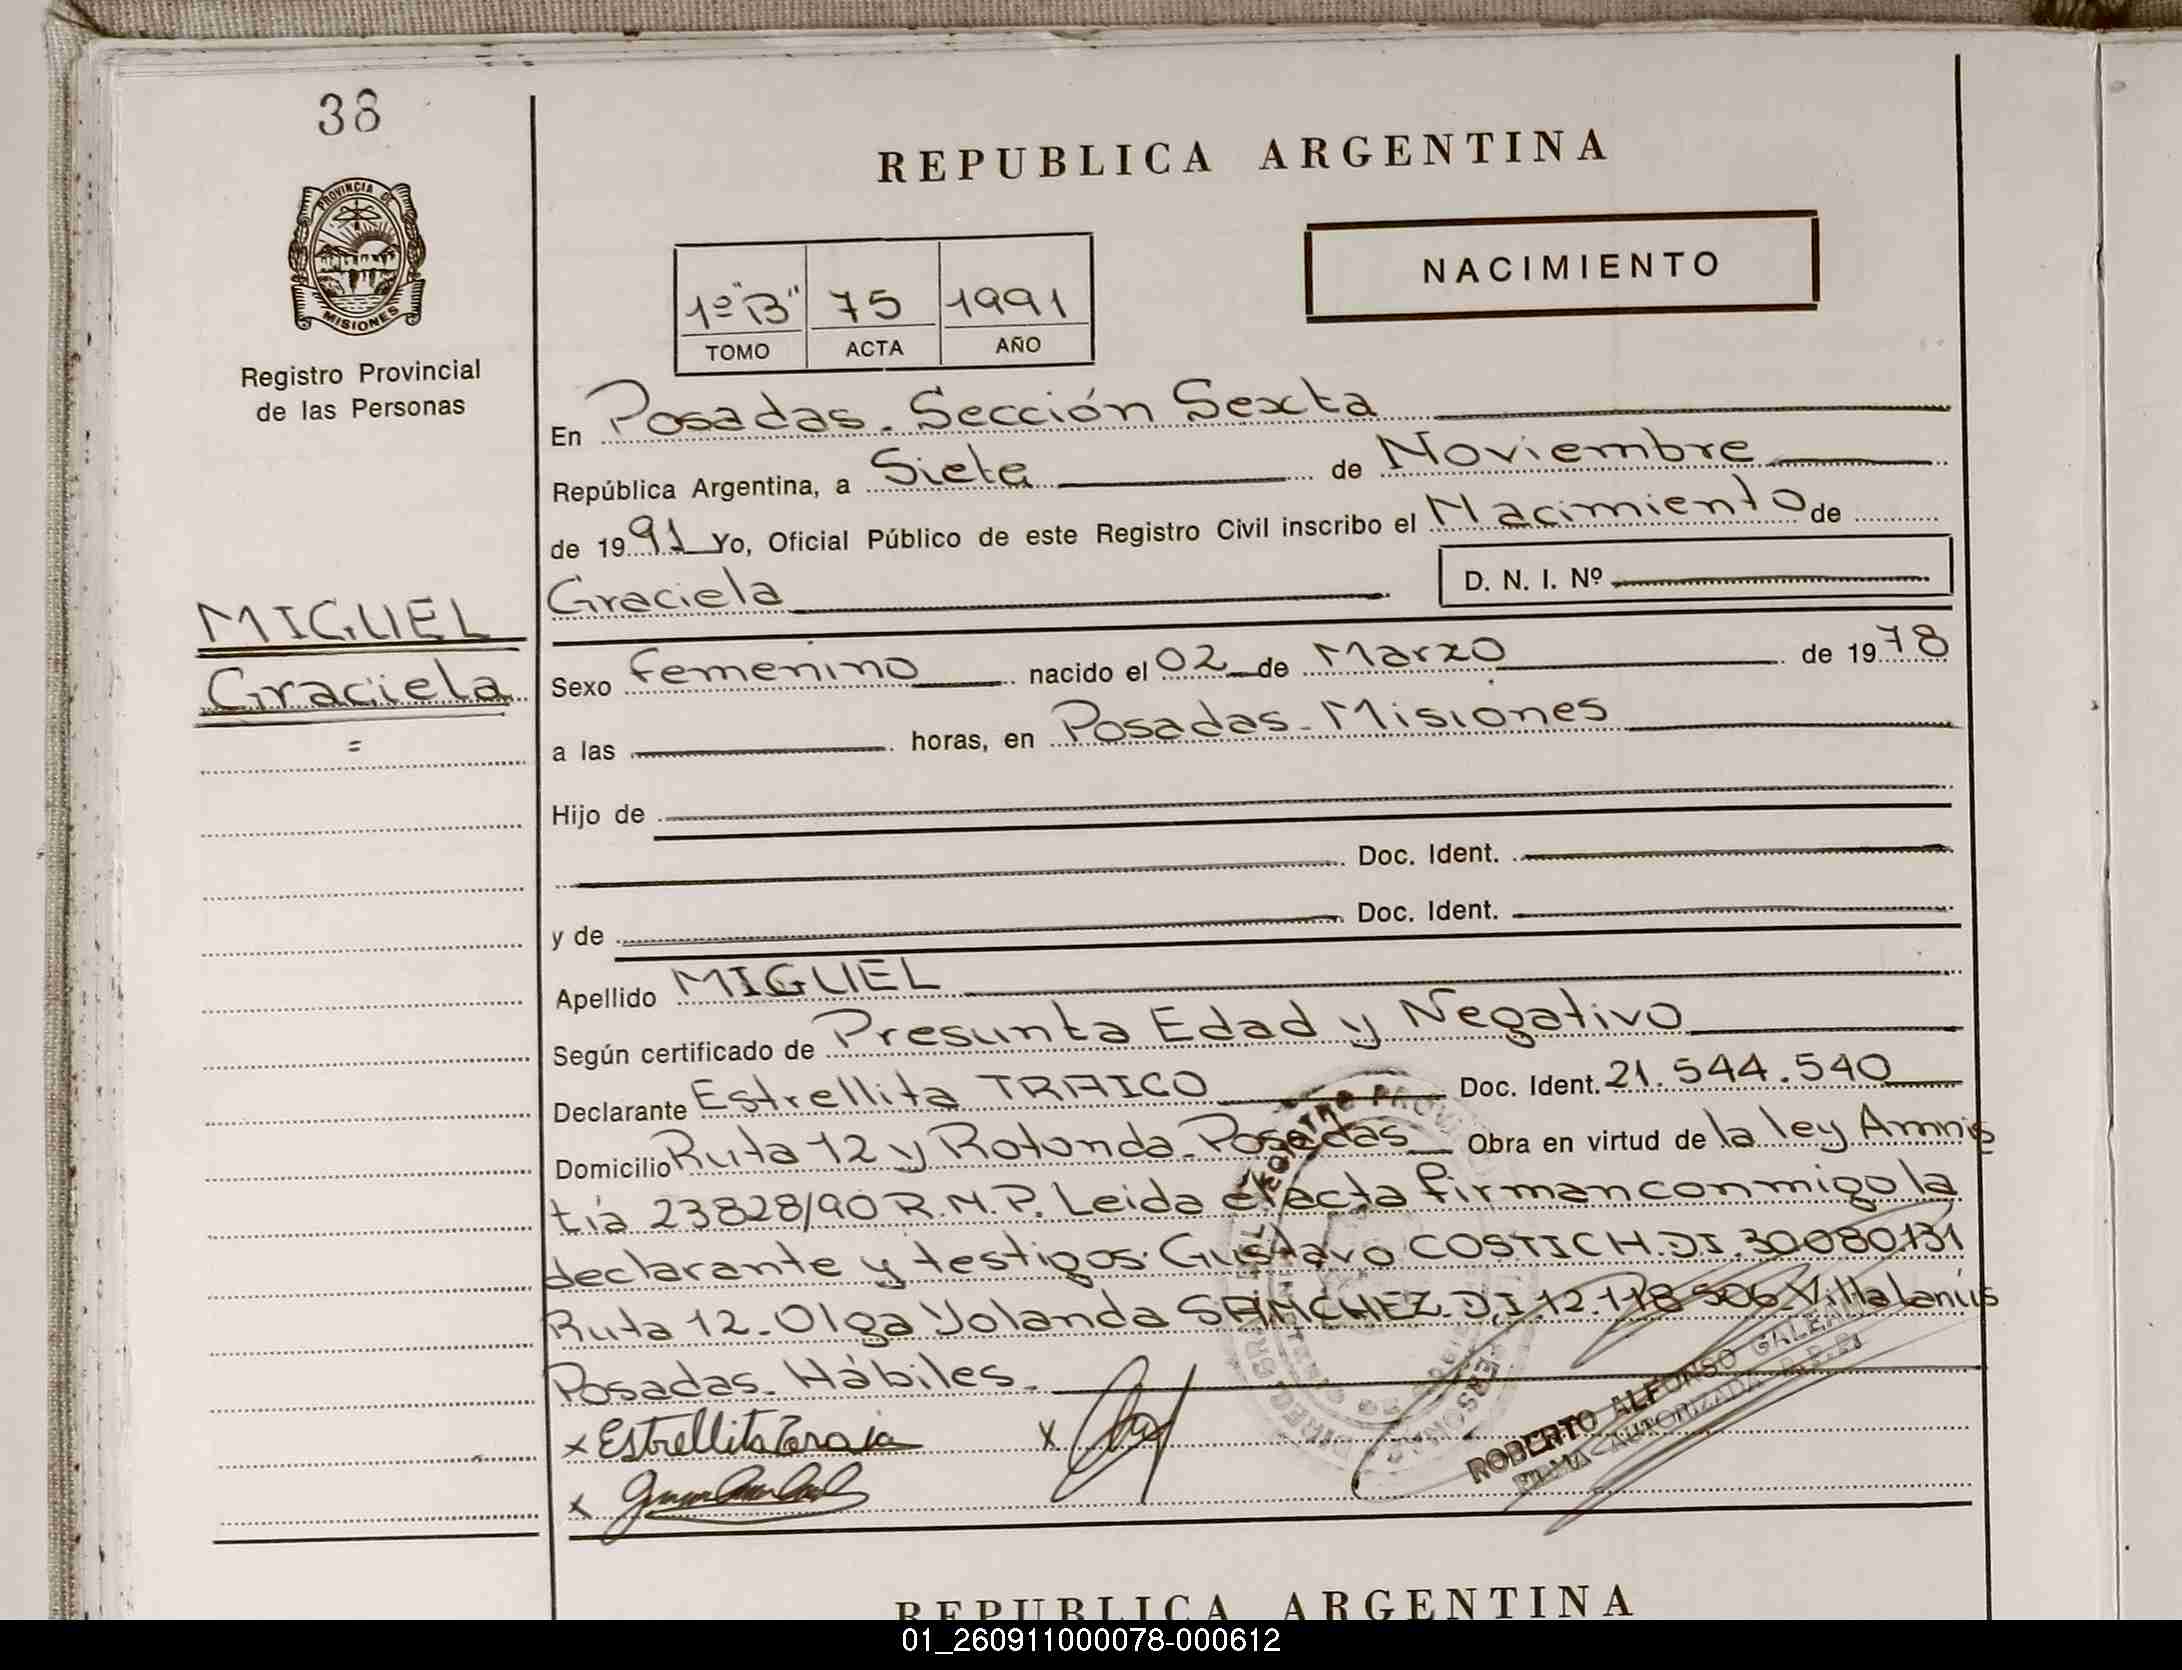 38
PROVINCIA DE
MISIONES
Registro Provincial
de las Personas
REPUBLICA ARGENTINA
NACIMIENTO
1º "B" 75 1991
TOMO ACTA AÑO
En Posadas. Sección Sexta
República Argentina, a Siete de Noviembre
de 1991 Yo, Oficial Público de este Registro Civil inscribo el Nacimiento de
Graciela D. N. I. Nº
MIGUEL
Graciela
Sexo femenino nacido el 02 de Marzo de 1978
a las horas, en Posadas - Misiones
Hijo de
Doc. Ident.
y de Doc. Ident.
Apellido MIGUEL
Según certificado de Presunta Edad y Negativo
Declarante Estrellita TRAICO Doc. Ident. 21.544.540
Domicilio Ruta 12 y Rotonda - Posadas Obra en virtud de la ley Amnis
tía 23828/90 R.N.P. Leida el acta firman conmigo la
declarante y testigos. Gustavo COSTICH. D.I. 30080.131
Ruta 12 - Olga Yolanda SANCHEZ. D.I. 12.118.506. Villa Lanús
Posadas. Hábiles.
x Estrellita x
x
ROBERTO ALFONSO
FIRMA AUTORIZADA
REPUBLICA ARGENTINA
01_260911000078-000612